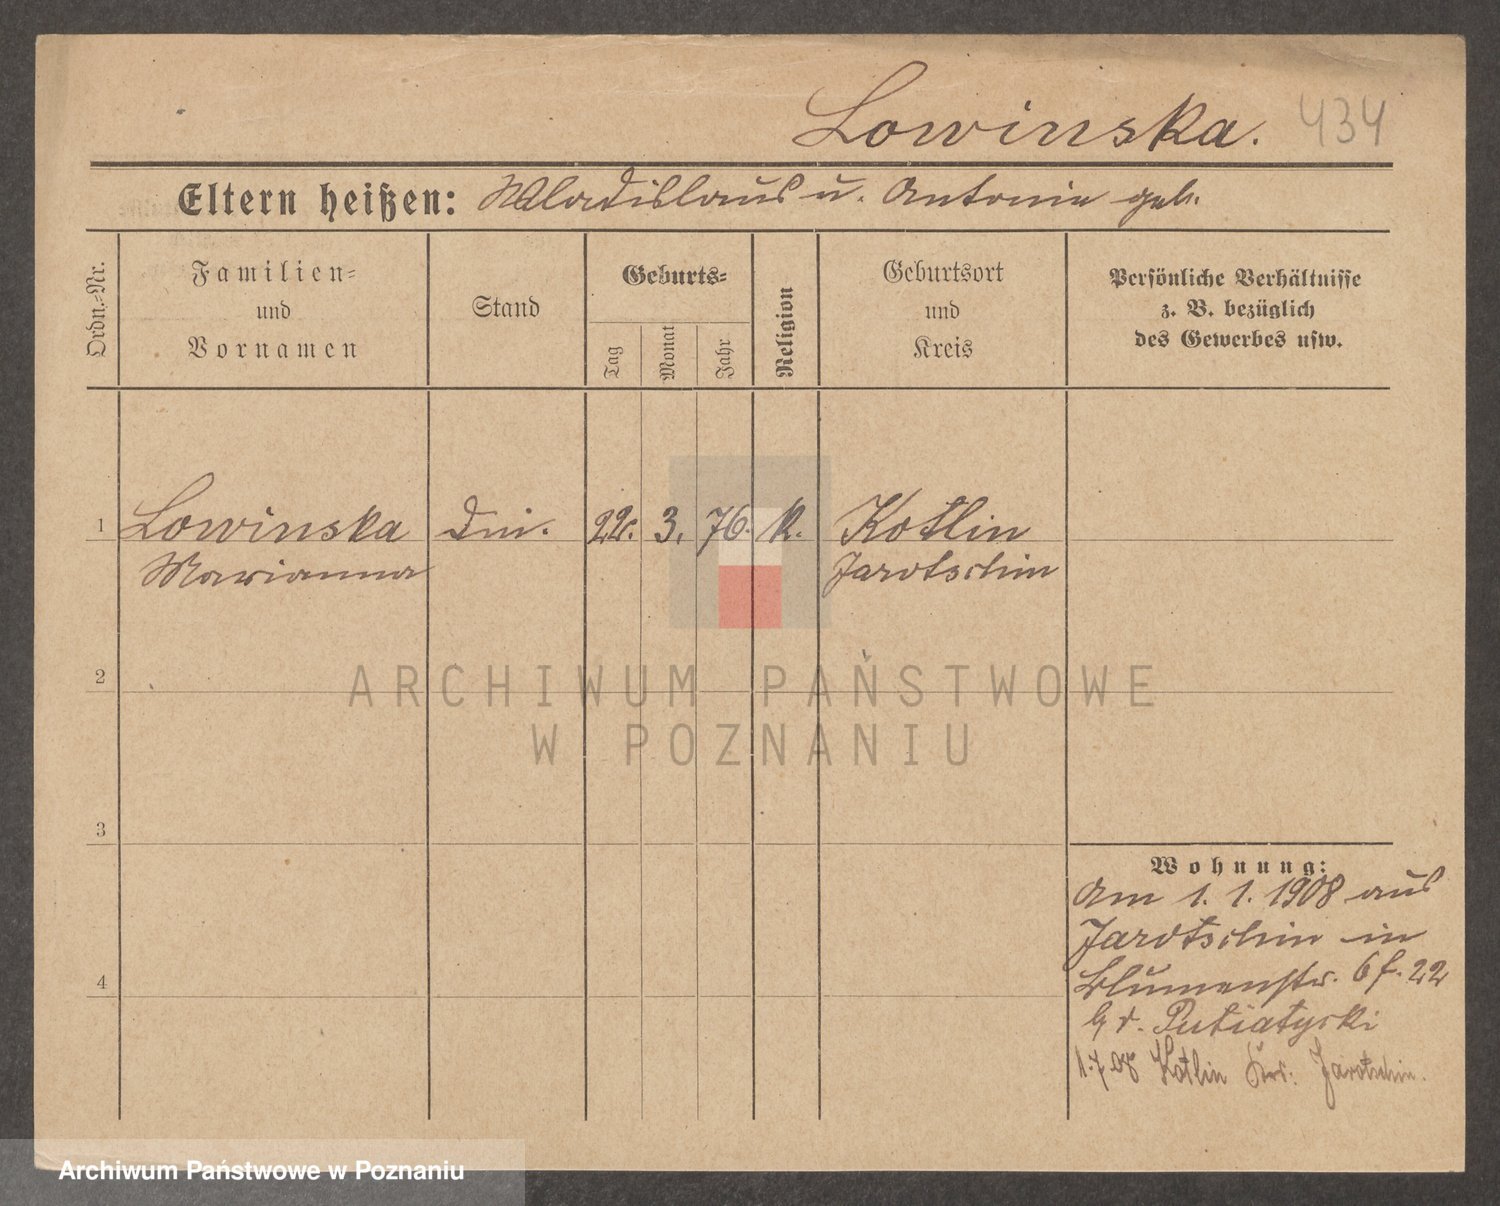 Lowinska. 434
Eltern heißen: Wladislaus u. Antonie geb.
Ordn.-Nr.
Familien-
und
Vornamen
Stand
Geburts-
Tag
Monat
Jahr
Religion
Geburtsort
und
Kreis
Persönliche Verhältnisse
z. B. bezüglich
des Gewerbes usw.
1 Lowinska 22. 3. 76. k. Kotlin
Marianna Jarotschin
2
3
4
Wohnung:
Am 1. 1. 1908 aus
Jarotschin in
Blumenstr. 6 f. 22
b. Putiatycki
1.7.08 Kotlin Krs. Jarotschin.
ARCHIWUM PAŃSTWOWE
W POZNANIU
Archiwum Państwowe w Poznaniu